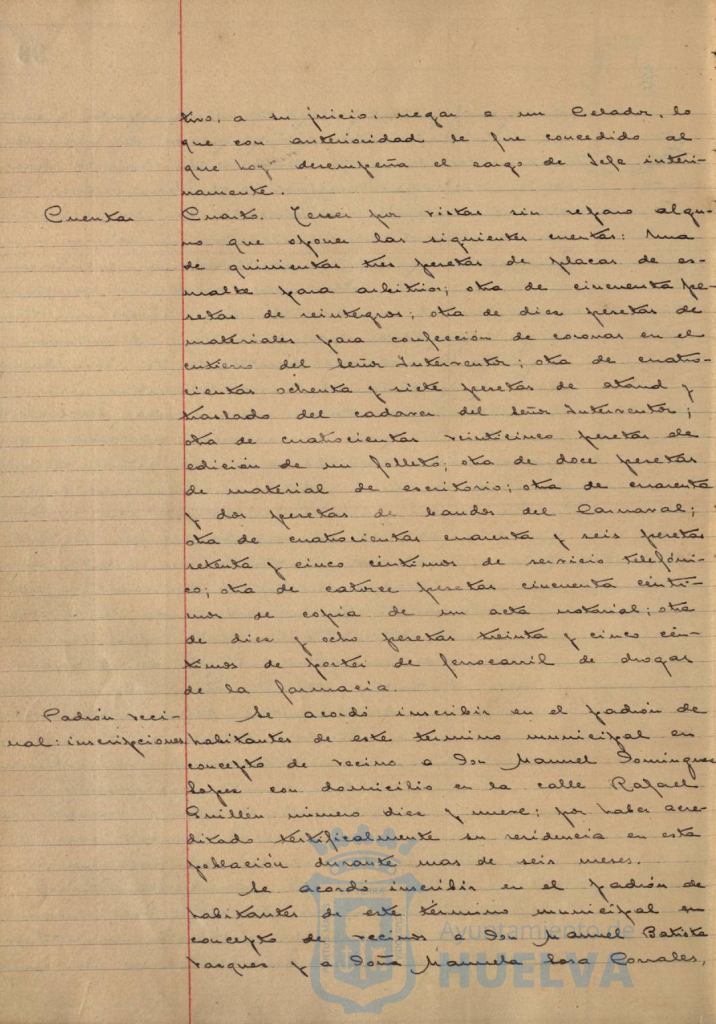 tivo, a su juicio, negar a un Celador, lo
que con anterioridad le fue concedido al
que hoy desempeña el cargo de Jefe interi-
namente.
Cuentas
Cuarto. Tener por vistas sin reparo algu-
no que oponer las siguientes cuentas: Una
de quinientas tres pesetas de placas de es-
malte para arbitrios; otra de cincuenta pe-
setas de reintegros; otra de diez pesetas de
materiales para confección de coronas en el
entierro del Señor Interventor; otra de cuatro-
cientas ochenta y siete pesetas de ataud y
traslado del cadaver del Señor Interventor;
otra de cuatrocientas veinticinco pesetas de
edición de un folleto; otra de doce pesetas
de material de escritorio; otra de cuarenta
y dos pesetas de bandos del Carnaval;
otra de cuatrocientas cuarenta y seis pesetas
setenta y cinco céntimos de servicio telefóni-
co; otra de catorce pesetas cincuenta cénti-
mos de copia de un acta notarial; otra
de diez y ocho pesetas treinta y cinco cén-
timos de portes de ferrocarril de drogas
de la farmacia.
Padrón veci-
nal: inscripciones
Se acordó inscribir en el padrón de
habitantes de este término municipal en
concepto de vecino a Don Manuel Domínguez
López con domicilio en la calle Rafael
Guillén número diez y nueve; por haber acre-
ditado testificalmente su residencia en esta
población durante mas de seis meses.
Se acordó inscribir en el padrón de
habitantes de este término municipal en
concepto de vecinos a Don Manuel Batista
Vazquez y a Doña Manuela Sosa Corrales,
Ayuntamiento de
HUELVA